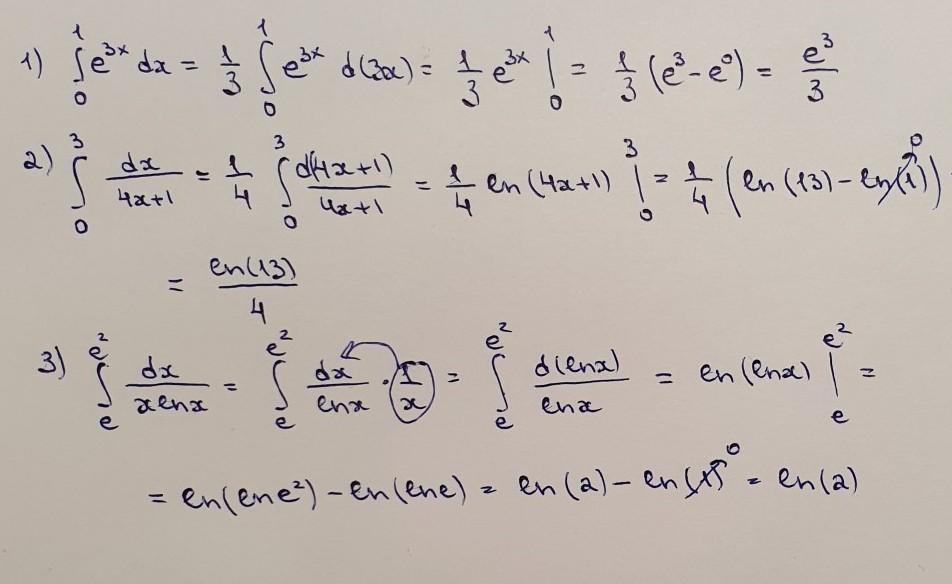 1) ∫₀¹ e³ˣ dx = 1/3 ∫₀¹ e³ˣ d(3x) = 1/3 e³ˣ |₀¹ = 1/3 (e³ - e⁰) = e³/3
2) ∫₀³ dx/(4x+1) = 1/4 ∫₀³ d(4x+1)/(4x+1) = 1/4 ln (4x+1) |₀³ = 1/4 (ln (13) - ln(1)→0)
= ln(13)/4
3) ∫ₑ^(e²) dx/(x lnx) = ∫ₑ^(e²) dx/lnx · (1/x) = ∫ₑ^(e²) d(lnx)/lnx = ln (lnx) |ₑ^(e²) =
= ln(lne²) - ln(lne) = ln (2) - ln(1)→0 = ln(2)